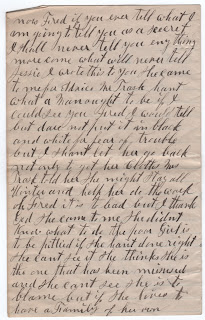 now Fred if you ever tell what I
am going to tell you as a secret
I shall never tell you any thing
more come what will never tell
Jessie I write this to you he came
to me for advice Mr Trask haint
what a man ought to be if I
could see you Fred I would tell
but dare not put it in black
and white for fear of trouble
but I shant let her go back
not only to get her Clothes Mrs
Trask told her she might stay all
Winter and help her do the work
oh Fred it is to bad but I thank
God she came to me She didnt
know what to do the poor Girl is
to be pittied if she haint done right
she cant see it she thinks she is
the one that has been misused
and she cant see she is to
blame but if she lives to
have a Family of her own